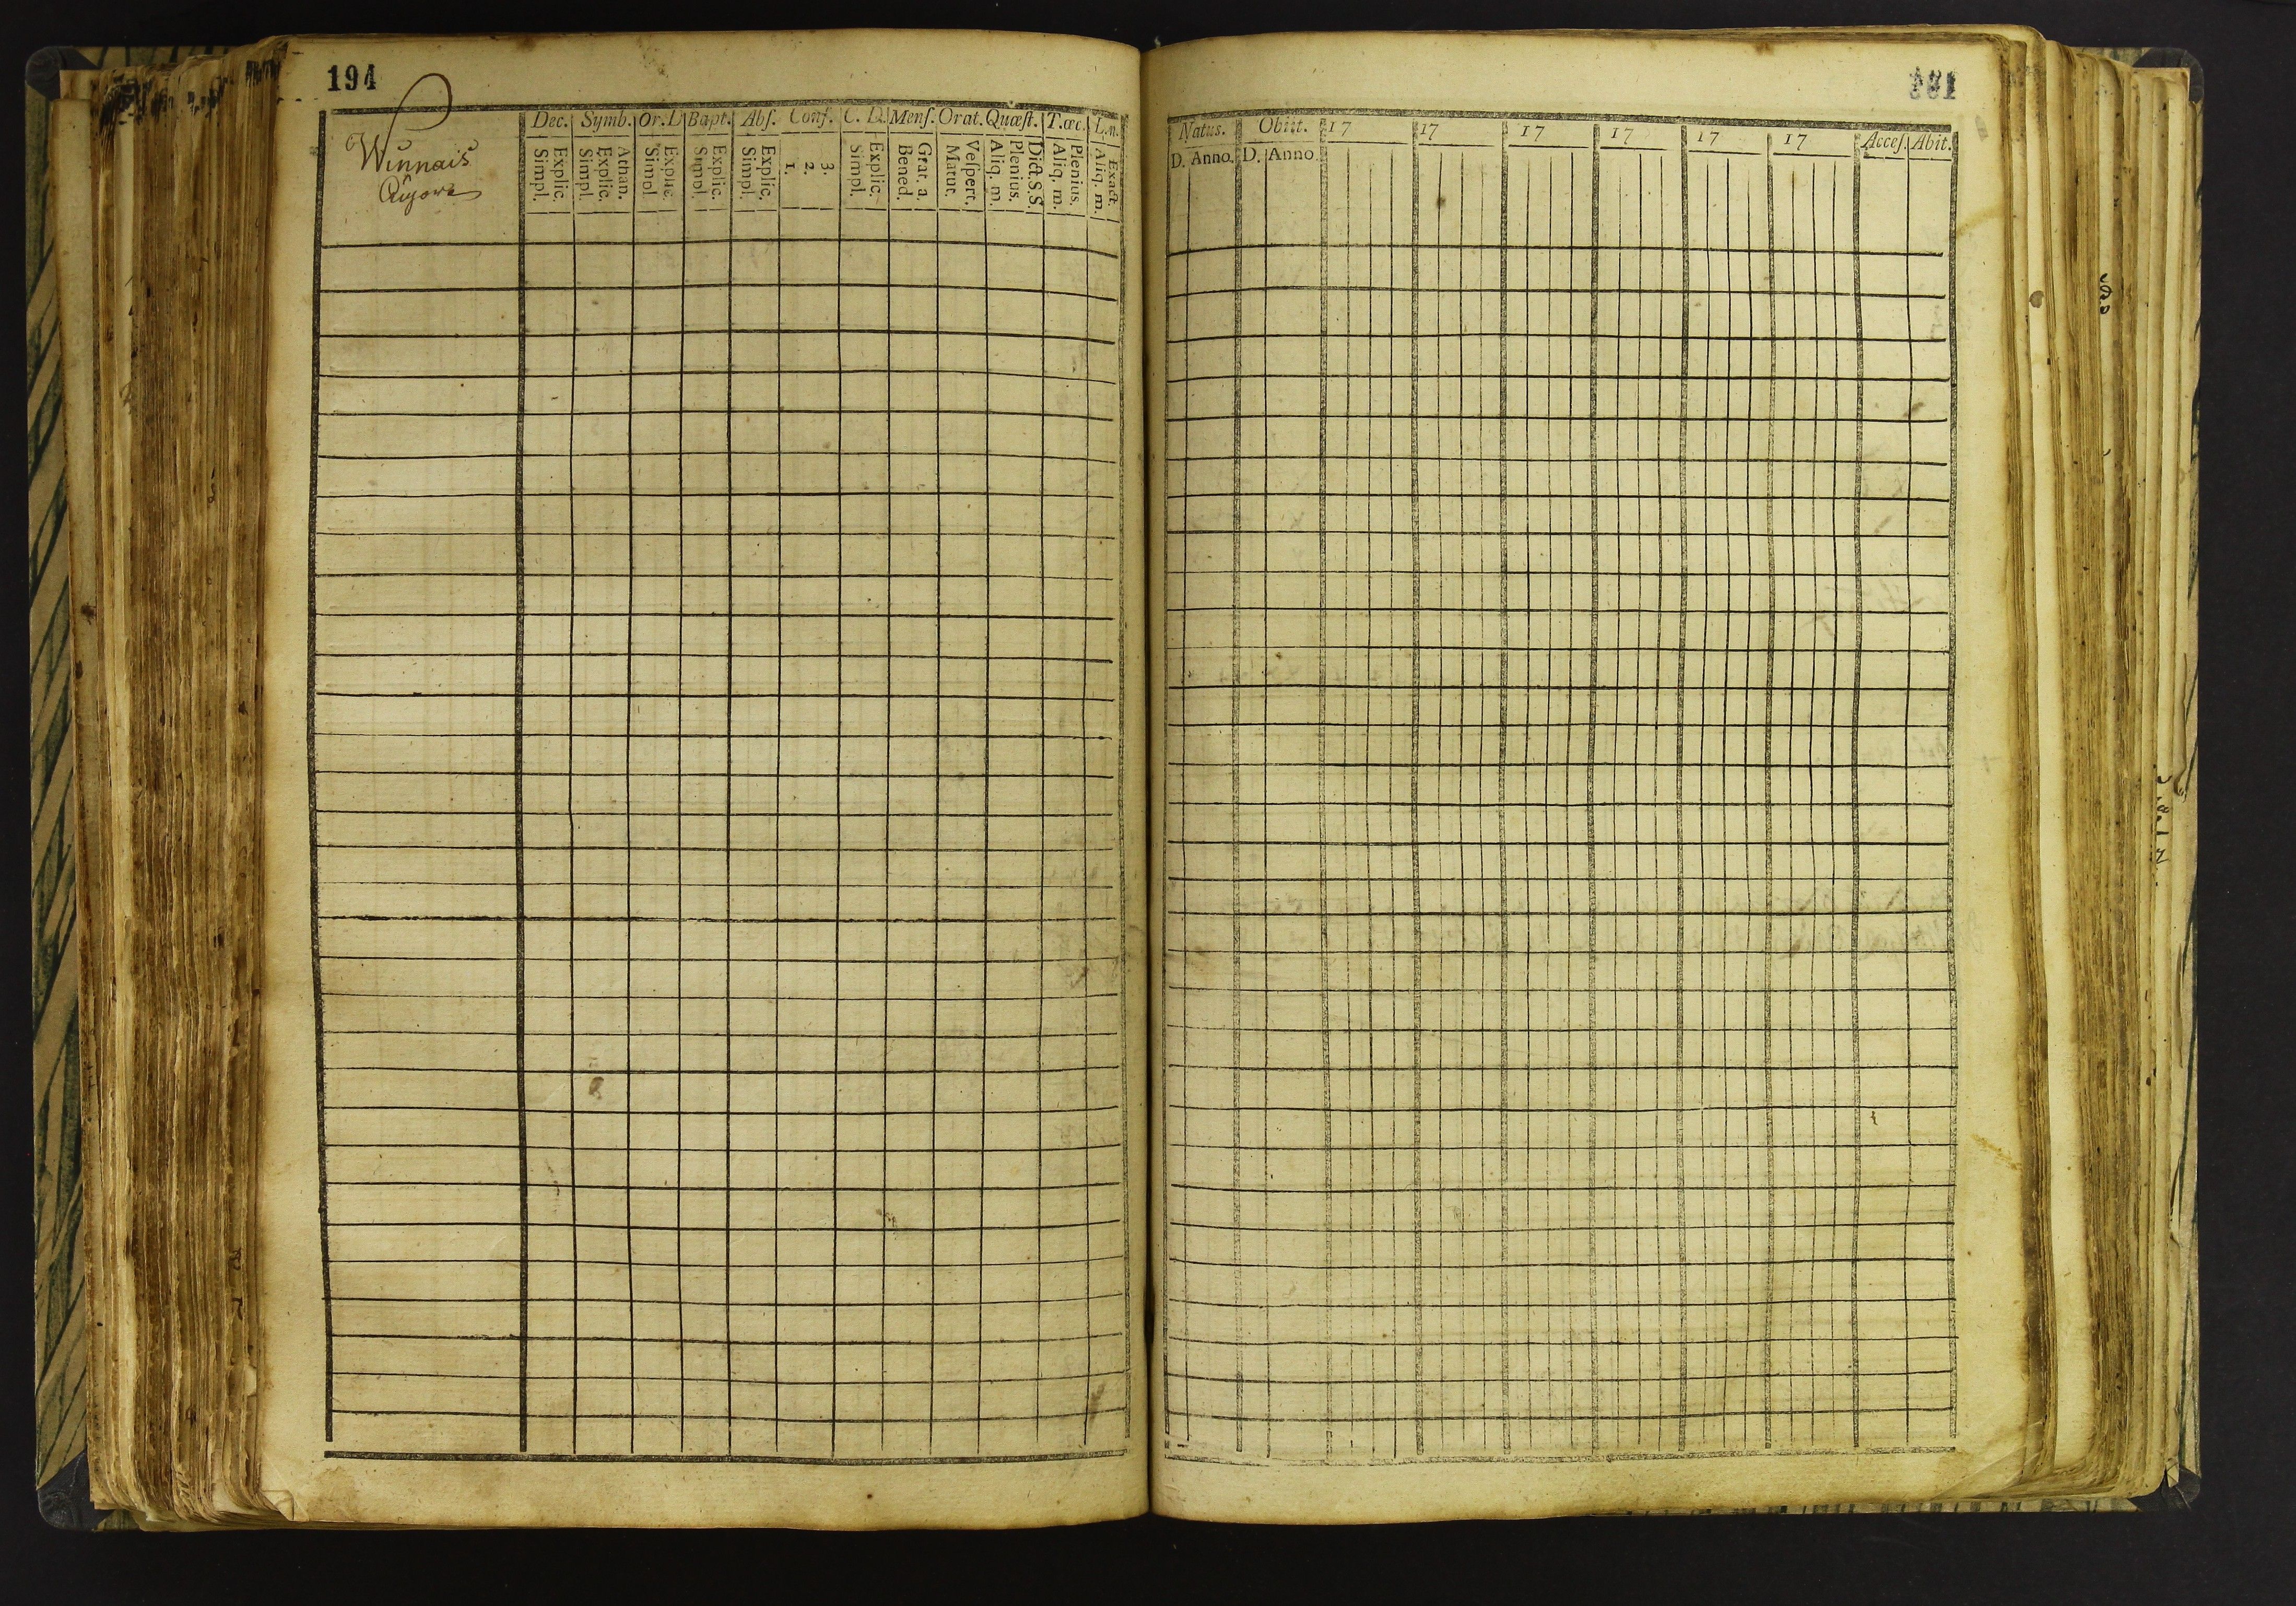 194
Winnais
Dec. Symb. Or. D Bapt. Abſ. Conf. C. D. Menſ. Orat. Quæſt. T.œc. L.n.
Simpl. Explic. Simpl. Explic. Athan. Simpl. Explic. Simpl. Explic. Simpl. Explic. 1. 2. 3. Simpl. Explic. Bened. Grat. a. Matut. Veſpert. Aliq. m. Plenius. Dict. S.S. Aliq. m. Plenius. Aliq. m. Exact.
Natus. Obiit. 17 17 17 17 17 17 Acceſ. Abit.
D. Anno. D. Anno.